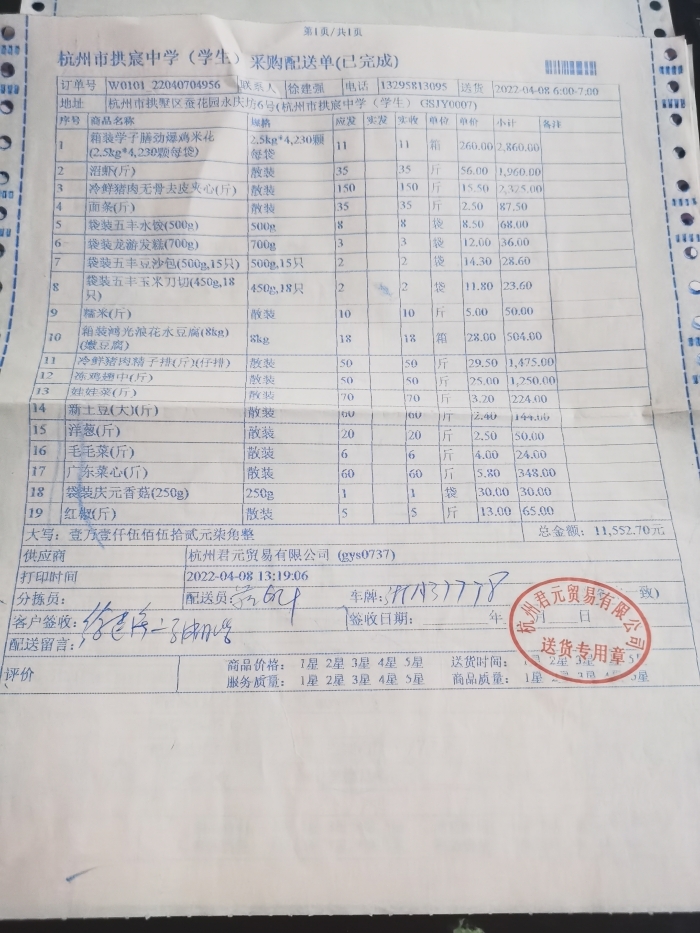 第1页/共1页
杭州市拱宸中学（学生）采购配送单(已完成)
订单号 W0101_22040704956 联系人 徐建强 电话 13295813095 送货 2022-04-08 6:00-7:00
地址 杭州市拱墅区蚕花园永庆坊6号(杭州市拱宸中学（学生）GSJY0007)
序号 商品名称 规格 应发 实发 实收 单位 单价 小计 备注
1 箱装学子膳劲爆鸡米花(2.5kg*4,230颗每袋) 2.5kg*4,230颗每袋 11 11 箱 260.00 2,860.00
2 沼虾(斤) 散装 35 35 斤 56.00 1,960.00
3 冷鲜猪肉无骨去皮夹心(斤) 散装 150 150 斤 15.50 2,325.00
4 面条(斤) 散装 35 35 斤 2.50 87.50
5 袋装五丰水饺(500g) 500g 8 8 袋 8.50 68.00
6 袋装龙游发糕(700g) 700g 3 3 袋 12.00 36.00
7 袋装五丰豆沙包(500g,15只) 500g,15只 2 2 袋 14.30 28.60
8 袋装五丰玉米刀切(450g,18只) 450g,18只 2 2 袋 11.80 23.60
9 糯米(斤) 散装 10 10 斤 5.00 50.00
10 箱装鸿光浪花水豆腐(8kg)(嫩豆腐) 8kg 18 18 箱 28.00 504.00
11 冷鲜猪肉精子排(斤)(仔排) 散装 50 50 斤 29.50 1,475.00
12 冻鸡翅中(斤) 散装 50 50 斤 25.00 1,250.00
13 娃娃菜(斤) 散装 70 70 斤 3.20 224.00
14 新土豆(大)(斤) 散装 60 60 斤 2.40 144.00
15 洋葱(斤) 散装 20 20 斤 2.50 50.00
16 毛毛菜(斤) 散装 6 6 斤 4.00 24.00
17 广东菜心(斤) 散装 60 60 斤 5.80 348.00
18 袋装庆元香菇(250g) 250g 1 1 袋 30.00 30.00
19 红椒(斤) 散装 5 5 斤 13.00 65.00
大写：壹万壹仟伍佰伍拾贰元柒角整 总金额：11,552.70元
供应商 杭州君元贸易有限公司 (gys0737)
打印时间 2022-04-08 13:19:06
分拣员： 配送员： 车牌： 一致)
客户签收： 签收日期： 年 月 日
配送留言：
杭州君元贸易有限公司
送货专用章
评价 商品价格： 1星 2星 3星 4星 5星 送货时间： 1星 2星 3星 4星 5星
服务质量： 1星 2星 3星 4星 5星 商品质量： 1星 2星 3星 4星 5星